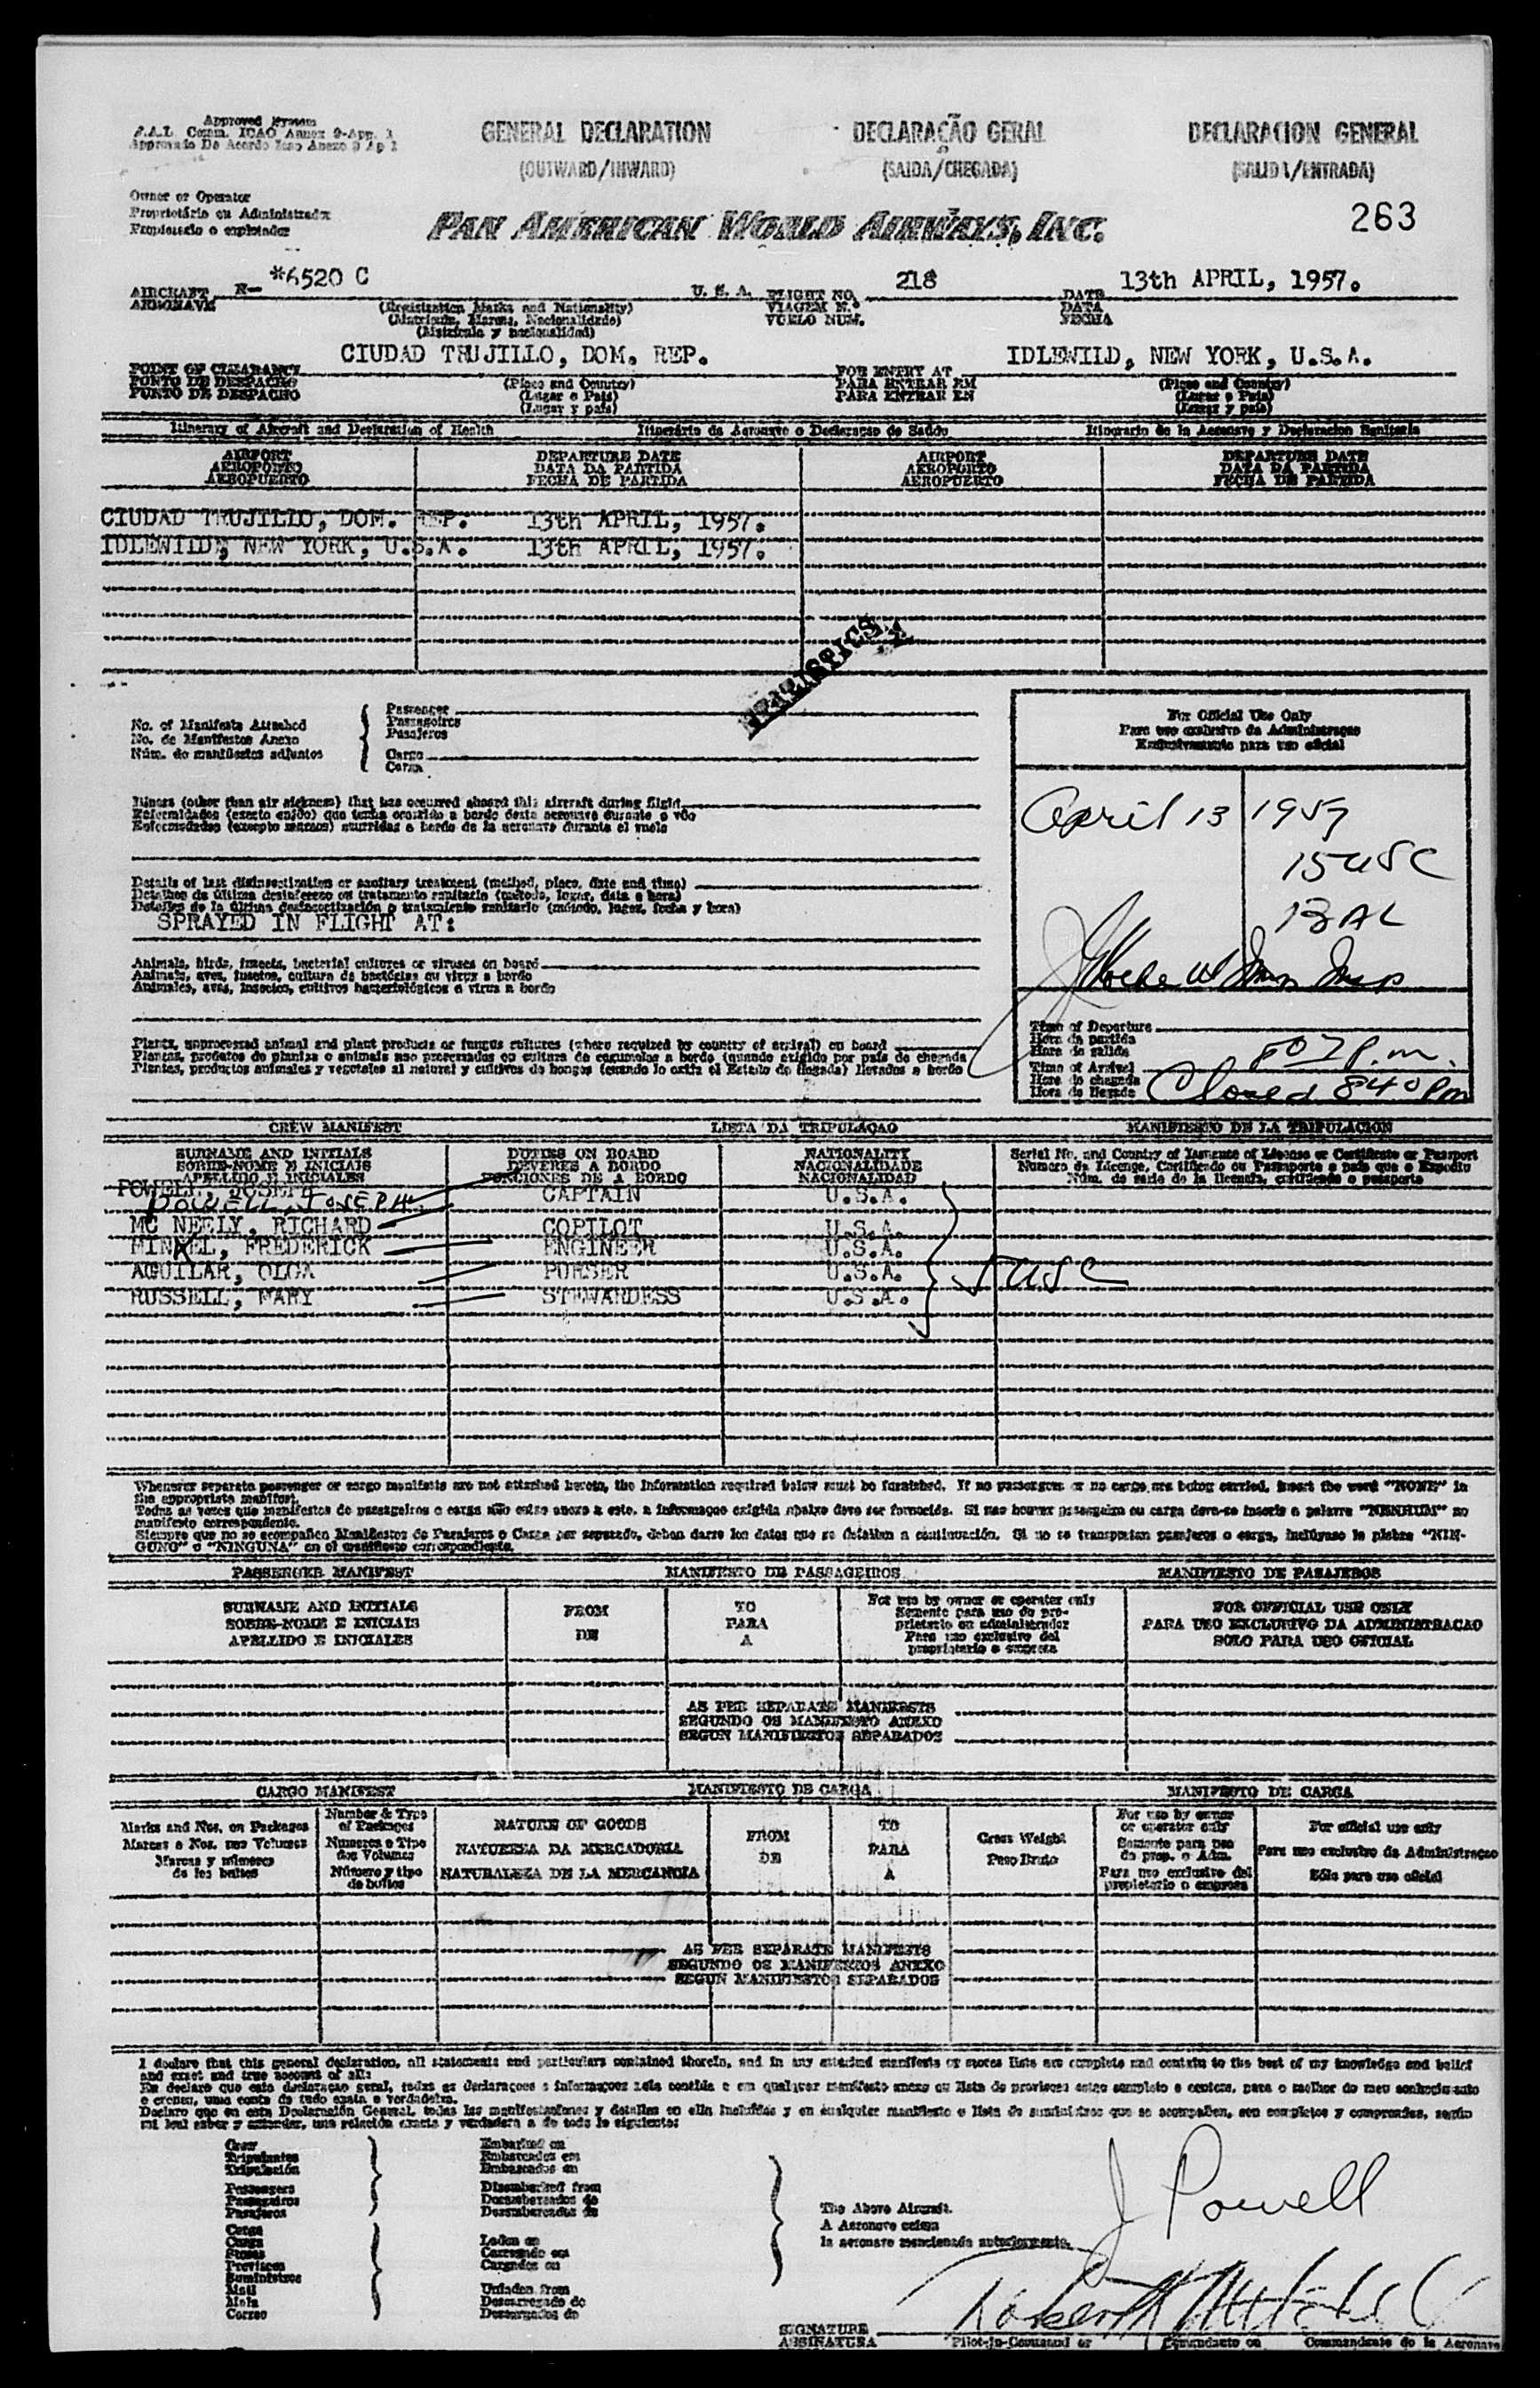 Approved System
F.A.L. Comm. ICAO Annex 9-App. 1
Approvado De Acordo Icao Anexo 9 Ap 1
GENERAL DECLARATION DECLARAÇÃO GERAL DECLARACION GENERAL
(OUTWARD/INWARD) (SAIDA/CHEGADA) (SALIDA/ENTRADA)
Owner or Operator
Proprietário ou Administrador
Propietario o explotador
PAN AMERICAN WORLD AIRWAYS, INC.
263
AIRCRAFT N- *6520 C U. S. A. FLIGHT NO. 218 DATE 13th APRIL, 1957.
AERONAVE (Registration Marks and Nationality) VIAGEM N.º DATA
(Matricula, Marcas, Nacionalidade) VUELO NUM. FECHA
(Matricula y nacionalidad)
CIUDAD TRUJILLO, DOM. REP. IDLEWILD, NEW YORK, U.S.A.
POINT OF CLEARANCE FOR ENTRY AT
PONTO DE DESPACHO (Place and Country) PARA ENTRAR EM (Place and Country)
PUNTO DE DESPACHO (Lugar e Pais) PARA ENTRAR EN (Lugar e Pais)
(Lugar y pais) (Lugar y pais)
Itinerary of Aircraft and Declaration of Health Itinerário da Aeronave e Declaraçao de Saúde Itinerario de la Aeronave y Declaracion Sanitaria
AIRPORT DEPARTURE DATE AIRPORT DEPARTURE DATE
AEROPORTO DATA DA PARTIDA AEROPORTO DATA DA PARTIDA
AEROPUERTO FECHA DE PARTIDA AEROPUERTO FECHA DE PARTIDA
CIUDAD TRUJILLO, DOM. REP. 13th APRIL, 1957.
IDLEWILD, NEW YORK, U.S.A. 13th APRIL, 1957.
STATISTICS
No. of Manifests Attached
No. de Manifestos Anexo
Núm. de manifiestos adjuntos
Passenger
Passageiros
Pasajeros
Cargo
Carga
For Official Use Only
Para uso exclusivo da Administraçao
Exclusivamente para uso oficial
April 13 1957
15 USC
13 AL
Illness (other than air sickness) that has occurred aboard this aircraft during flight
Enfermidades (exceto enjôo) que tenha ocorrido a bordo desta aeronave durante o vôo
Enfermedades (excepto mareos) ocurridas a bordo de la aeronave durante el vuelo
Details of last disinsectization or sanitary treatment (method, place, date and time)
Detalhes da última desinfeccao ou tratamento sanitario (método, lugar, data e hora)
Detalles de la última desinsectización o tratamiento sanitario (método, lugar, fecha y hora)
SPRAYED IN FLIGHT AT:
Animals, birds, insects, bacterial cultures or viruses on board
Animais, aves, insetos, cultura de bactérias ou virus a bordo
Animales, aves, insectos, cultivos bacteriológicos o virus a bordo
Plants, unprocessed animal and plant products or fungus cultures (where required by country of arrival) on board
Plantas, produtos de plantas e animais nao processados ou cultura de cogumelos a bordo (quando exigido por pais de chegada
Plantas, productos animales y vegetales al natural y cultivos de hongos (cuando lo exija el Estado de llegada) llevados a bordo
Time of Departure
Hora da partida
Hora de salida 807 P.m.
Time of Arrival
Hora de chegada
Hora de llegada Closed 840 Pm
CREW MANIFEST LISTA DA TRIPULAÇAO MANIFIESTO DE LA TRIPULACION
SURNAME AND INITIALS DUTIES ON BOARD NATIONALITY Serial No. and Country of Issuance of License or Certificate or Passport
SOBRE-NOME E INICIAIS DEVERES A BORDO NACIONALIDADE Numero da Licenge, Certificado ou Passaporte e pais que o Expediu
APELLIDO E INICIALES FUNCIONES DE A BORDO NACIONALIDAD Núm. de serie de la licencia, certificado o pasaporte
POWELL, JOSEPH
POWELL, JOSEPH CAPTAIN U.S.A.
MC NEELY, RICHARD COPILOT U.S.A.
FINKEL, FREDERICK ENGINEER U.S.A.
AGUILAR, OLGA PURSER U.S.A. 5 USC
RUSSELL, MARY STEWARDESS U.S.A.
Whenever separate passenger or cargo manifests are not attached hereto, the information required below must be furnished. If no passengers or no cargo are being carried, insert the word "NONE" in
the appropriate manifest.
Todas as vezes que manifestos de passageiros e carga não esteo anexo a este, a informaçao exigida abaixo deve ser fornecida. Si nao houver passageiro ou carga deve-se inserir a palavra "NENHUM" no
manifesto correspondente.
Siempre que no se acompañen Manifiestos de Pasajeros o Carga por separado, deben darse los datos que se detallan a continuación. Si no se transportan pasajeros o carga, inclúyase la plabra "NIN-
GUNO" o "NINGUNA" en el manifiesto correspondiente.
PASSENGER MANIFEST MANIFESTO DE PASSAGEIROS MANIFIESTO DE PASAJEROS
SURNAME AND INITIALS FROM TO For use by owner or operater only FOR OFFICIAL USE ONLY
SOBRE-NOME E INICIAIS PARA Somente para uso do pro- PARA USO EXCLUSIVO DA ADMINISTRACAO
APELLIDO E INICIALES DE A prietario ou administrador SOLO PARA USO OFICIAL
Para uso exclusivo del
propietario o empresa
AS PER SEPARATE MANIFESTS
SEGUNDO OS MANIFESTO ANEXO
SEGUN MANIFIESTOS SEPARADOS
CARGO MANIFEST MANIFIESTO DE CARGA MANIFESTO DE CARGA
Marks and Nos. on Packages Number & Type of Packages NATURE OF GOODS FROM TO Gross Weight For use by owner or operator only For official use only
Marcas e Nos. nos Volumes Numeros e Tipo dos Volumes NATUREZA DA MERCADORIA PARA Peso Bruto Somente para uso do prop. o Adm. Para uso exclusivo da Administraçao
Marcas y números de los bultos Número y tipo de bultos NATURALEZA DE LA MERCANCIA DE A Para uso exclusivo del propietario o empresa Sólo para uso oficial
AS PER SEPARATE MANIFESTS
SEGUNDO OS MANIFESTOS ANEXO
SEGUN MANIFIESTOS SEPARADOS
I declare that this general declaration, all statements and particulars contained therein, and in any attached manifests or stores lists are complete and contain to the best of my knowledge and belief
and exact and true account of all:
Eu declaro que esta declaraçao geral, todas as declaraçoes e informaçoes nela contida e em qualquer manifesto anexo ou lista de provisoes estao completo e contem, para o melhor do meu conhecimento
e crença, uma conta de tudo exata e verdadeira.
Declaro que en esta Declaración General, todas las manifestaciones y detalles en ella incluidas y en cualquier manifiesto o lista de suministros que se acompañen, son completos y comprenden, según
mi leal saber y entender, una relación exacta y verdadera a de todo lo siguiente:
Crew Embarked on
Tripulantes Embarcados em
Tripulación Embarcados en
Passengers Disembarked from
Passageiros Desembarcados de
Pasajeros Desembarcados de
Cargo
Carga Laden on
Stores Carregado em
Provisoes Cargados en
Suministros
Mail Unladen from
Mala Descarregado de
Correo Descargados de
The Above Aircraft.
A Aeronave acima
la aeronave mencionada anteriormente.
J Powell
SIGNATURE
ASSINATURA Pilot-in-Command or Comandante ou Commandante de la Aeronave